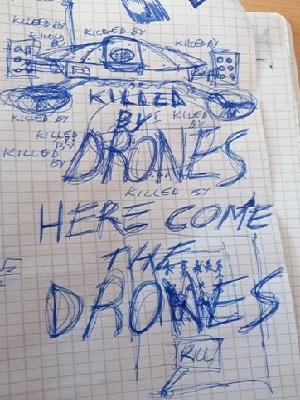 KILLED BY
KILLED BY
KILLED BY
KILLED BY
KILLED BY
KILLED
BY
KILLED BY
KILLED
BY
KILLED
BY
KILLED
BY
DRONES
KILLED BY
HERE COME
THE
DRONES
KILL